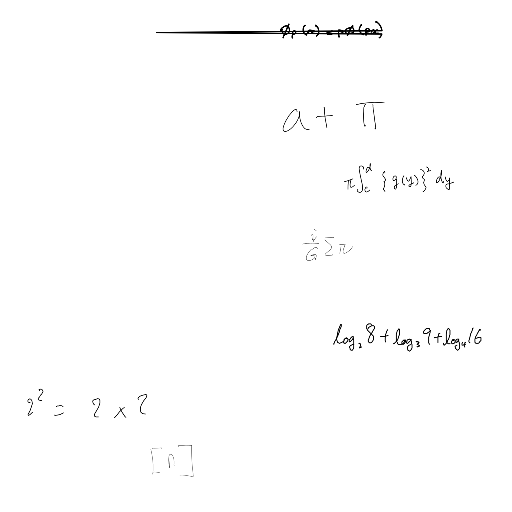 a + π
π∫_c^d {g(y)}² dy
i/G Σ π
log₂ 8 + log₃ 9 + log₄ 16
2² = 2 × 2
[n]